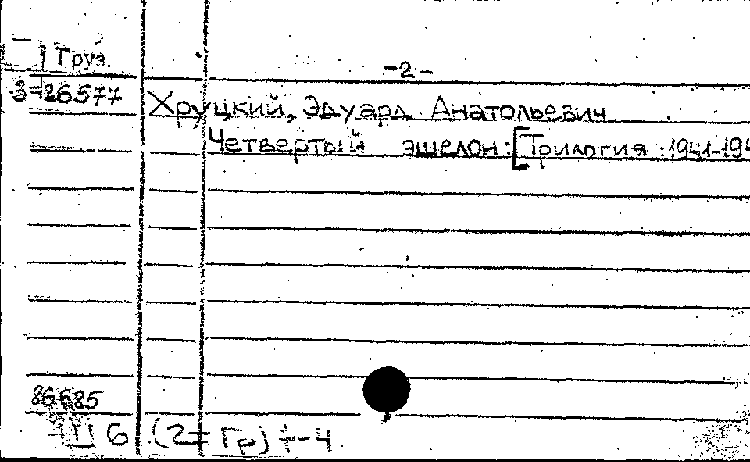 Груз.
-2-
3-26577
Хруцкий, Эдуард Анатольевич
Четвертый эшелон: [Трилогия : 1941-194
86685
6 (2= Гр) +-4